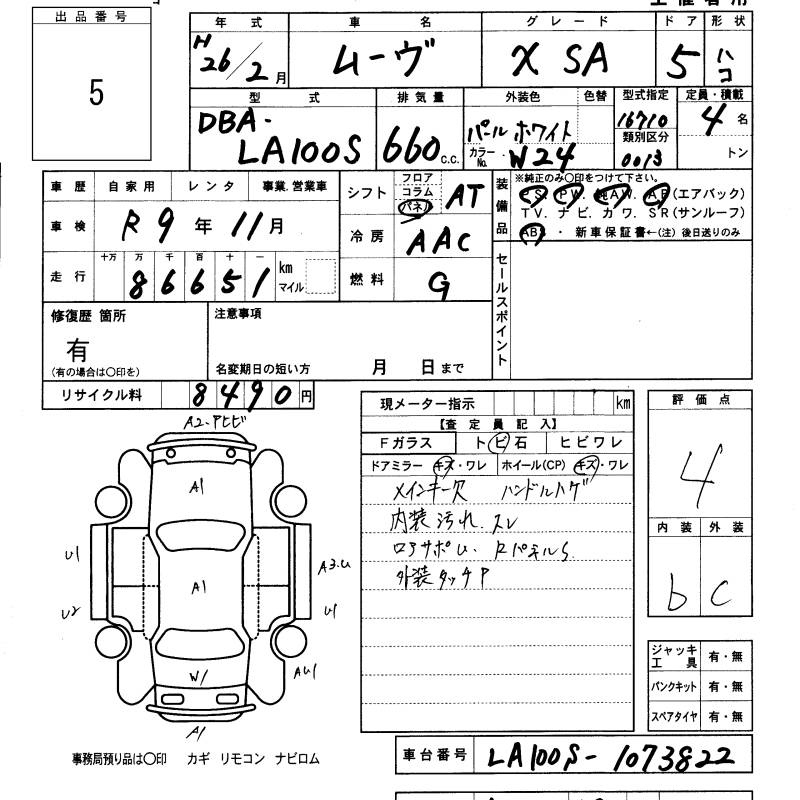 出品番号
5
年式 車名 グレード ドア 形状
H26/2月 ムーヴ X SA 5 ハコ
型式 排気量 外装色 色替 型式指定 定員・積載
DBA-LA100S 660 c.c. パールホワイト 16710 4名
カラーNo. W24 類別区分 0013 トン
車歴 自家用 レンタ 事業.営業車
車検 R9年11月
走行 十万 万 千 百 十 一
86651 km マイル
シフト フロア コラム パネル AT
冷房 AAC
燃料 G
装備品
※純正のみ〇印をつけて下さい。
PS. PW. 純AW. AB(エアバック)
TV. ナビ. カワ. SR(サンルーフ)
ABS ・ 新車保証書←(注)後日送りのみ
セールスポイント
修復歴 箇所
有
(有の場合は〇印を)
注意事項
名変期日の短い方 月 日まで
リサイクル料 8490円
現メーター指示 km
【査定員記入】
Fガラス トビ石 ヒビワレ
ドアミラー キズ・ワレ ホイール(CP) キズ・ワレ
メインキー欠 ハンドルハゲ
内装汚れ.スレ
ロアサポU. RパネルS.
外装タッチP
評価点
4
内装 外装
b C
ジャッキ工具 有・無
パンクキット 有・無
スペアタイヤ 有・無
A2-PヒビP
A1
U1
A3.U
A1
U2
U1
W1
AU1
A1
事務局預り品は〇印 カギ リモコン ナビロム
車台番号 LA100S-1073822